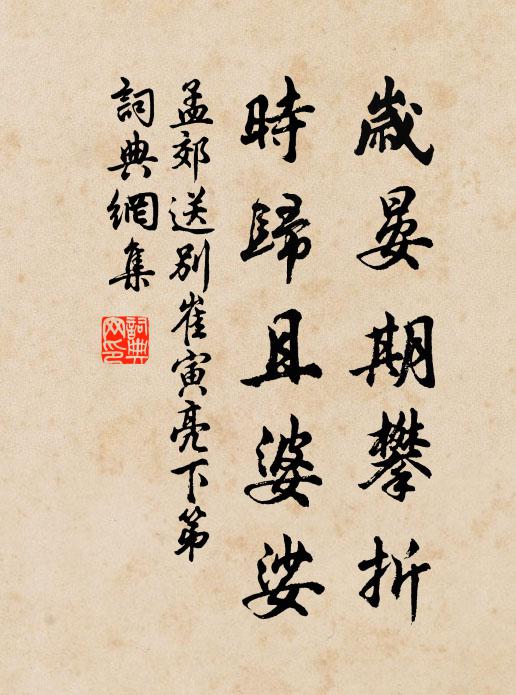 歲晏期攀折
時歸且婆娑
孟郊送別崔寅亮下第
詞典網集
詞典
網印